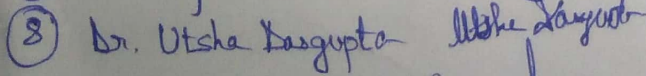 8 Dr. Utsha Dasgupta Utsha Dasgupta